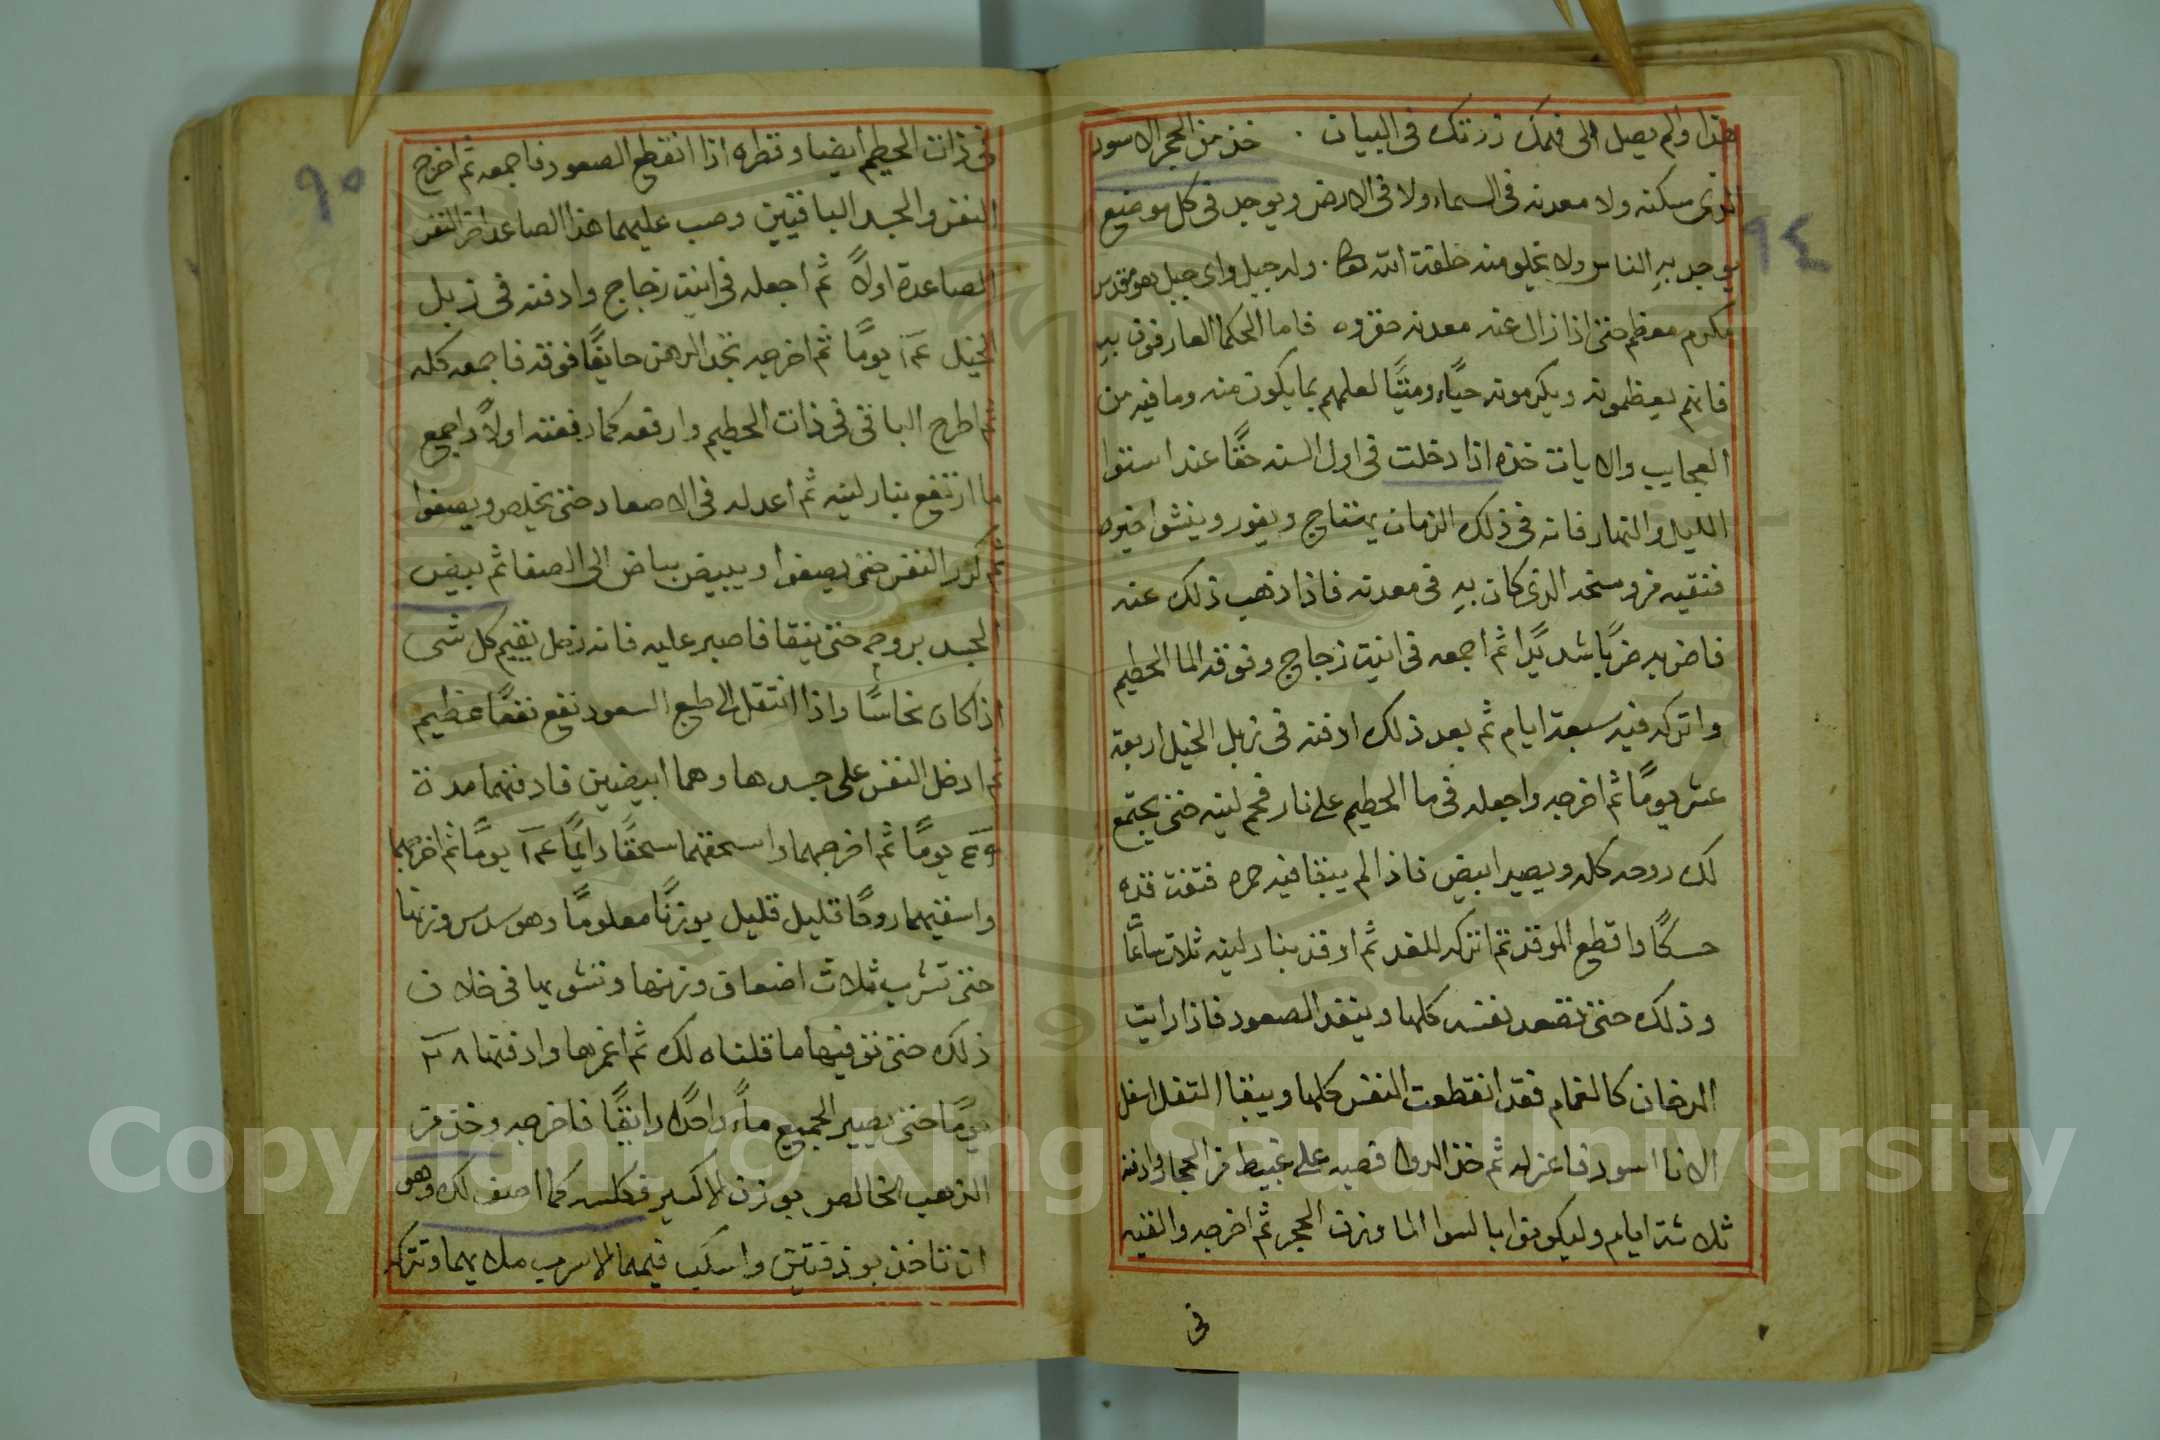 ٩٤
هذا ولم يصل الى فهمك زدتك فى البيان . خذ من الحجر الاسود
الذى سكنه ولا معدنه فى السماء ولا فى الارض ويوجد فى كل موضع
يوجد به الناس ولا يخلو منه خلقت الله وله جبل واى جبل هو مقدس
مكرم معظم حتى اذا زال عنه معدنه حقروه فاما الحكما العارفون به
فانهم يعظمونه ويكرمونه حيًا وميتًا لعلمهم بما يكون منه وما فيه من
العجايب والايات خذه اذا دخلت فى اول السنه حقًا عند استوا
الليل والنهار فانه فى ذلك الزمان يهتاج ويفور وينشوا خيره
فنقيه من وسخه الذى كان به فى معدنه فاذا ذهب ذلك عنه
فاضربه ضربًا شديدًا ثم اجمعه فى انيت زجاج وفوقه الما الحطيم
واتركه فيه سبعة ايام ثم بعد ذلك ادفنه فى زبل الخيل اربعة
عشر يومًا ثم اخرجه واجعله فى ما الحطيم على نار فحم لينه حتى يجتمع
لك روحه كله ويصير ابيض فاذا لم يبقا فيه حمره فتفت قده
واقطع الموقد ثم اتركه للغد ثم اوقد بنار لينه ثلاث ساعات
وذلك حتى تصعد نفسه كلها وينفد الصعود فاذا رايت
الدخان كالغمام فقد انقطعت النفس كلها ويبقا التفل اسفل
الانا اسود فاعزله ثم خذ الدوا فصبه على من الحجار وادفنه
ثلاثة ايام وليكونوا بالسوا الما وزن الحجر ثم اخرجه والقيه
فى
٩٥
فى ذات الحطيم ايضا وقطره اذا انقطع الصعود فاجمعه ثم اخرج
النفس والجسد الباقيين وصب عليهما هذا الصاعد النفس
الصاعدة اولًا ثم اجعله فى انيت زجاج وادفنه فى زبل
الخيل يومًا ثم اخرجه تجد الدهن فوقه فاجمعه كله
ثم اطرح الباقى فى ذات الحطيم وارفعه كما رفعته اولًا واجمع
ما ارتفع بنار لينه ثم اعد له فى الاصعاد حتى يخلص ويصفوا
ثم كرر النفس حتى يصفوا ويبيض بياض الى الصفا ثم بيض
الجسد بروحه حتى ينقا فاصبر عليه فانه زحل يقيم كل شى
اذ كان نحاسًا واذا انتقل الى طبع السعود نفع نفعًا عظيم
ثم ادخل النفس على جسدها وهما ابيضين فادفنهما مدة
يومًا ثم اخرجهما واسحقهما سحقًا دايمًا يومًا ثم اخرجهما
واسقيهما روحًا قليل قليل بوزنًا معلومًا وهو سدس وزنها
حتى تشرب ثلاث اضعاف وزنها وتشويها فى خلال
ذلك حتى توفيها ما قلناه لك ثم اغمرها وادفنها ٢٨
يومًا حتى يصير الجميع ماءً واحدًا رايقًا فاخرجه وخذ من
الذهب الخالص بوزن الاكسير فكلسه كما اصف لك وهى
ان تاخذ بوذقتين واسكب فيهما الاسرب ملايهما وتتركه
Copyright © King Saud University